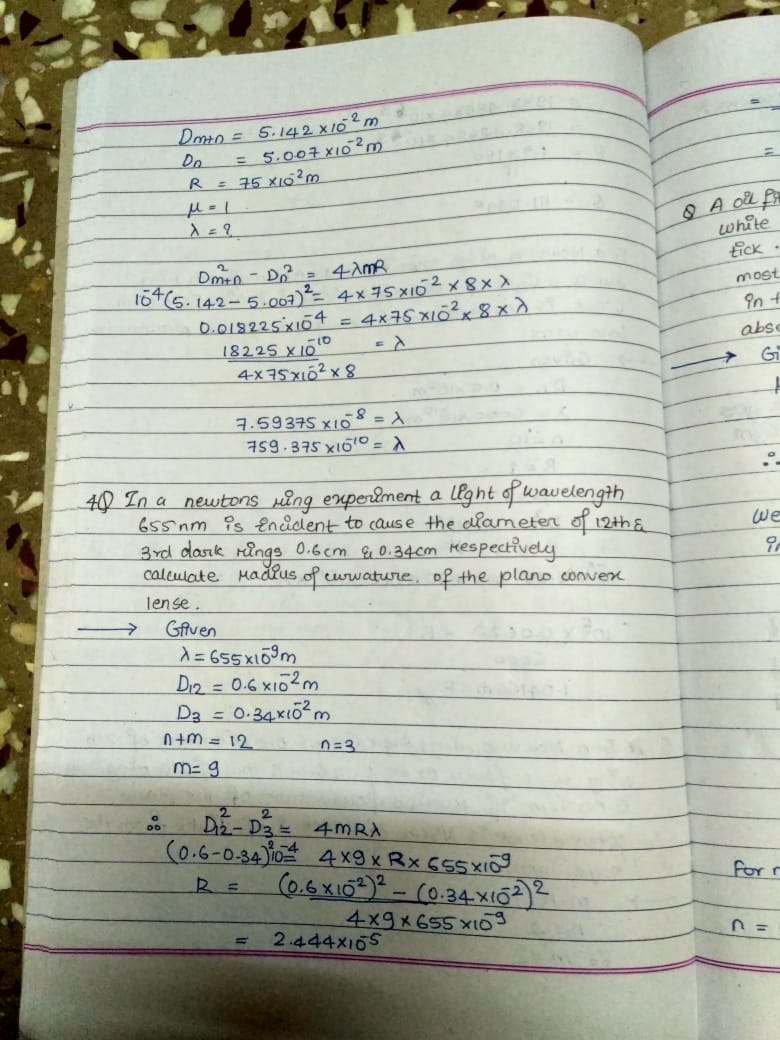 Dm+n = 5.142 × 10⁻² m
Dn = 5.007 × 10⁻² m
R = 75 × 10⁻² m
μ = 1
λ = ?
D²m+n - Dn² = 4λmR
10⁻⁴ (5.142 - 5.007)² = 4 × 75 × 10⁻² × 8 × λ
0.018225 × 10⁻⁴ = 4 × 75 × 10⁻² × 8 × λ
18225 × 10⁻¹⁰ = λ
4 × 75 × 10⁻² × 8
7.59375 × 10⁻⁸ = λ
759.375 × 10⁻¹⁰ = λ
4Q In a newtons ring experiment a light of wavelength
655nm is incident to cause the diameter of 12th &
3rd dark rings 0.6cm & 0.34cm respectively
calculate radius of curvature. of the plano convex
lense.
→ Given
λ = 655 × 10⁻⁹ m
D12 = 0.6 × 10⁻² m
D3 = 0.34 × 10⁻² m
n+m = 12 n=3
m = 9
∴ D²12 - D²3 = 4mRλ
(0.6 - 0.34)² 10⁻⁴ = 4 × 9 × R × 655 × 10⁻⁹
R = (0.6 × 10⁻²)² - (0.34 × 10⁻²)²
4 × 9 × 655 × 10⁻⁹
= 2.444 × 10⁻⁵
=
=
Q A oil
white
most
in
→
∴
We
in
For
n =